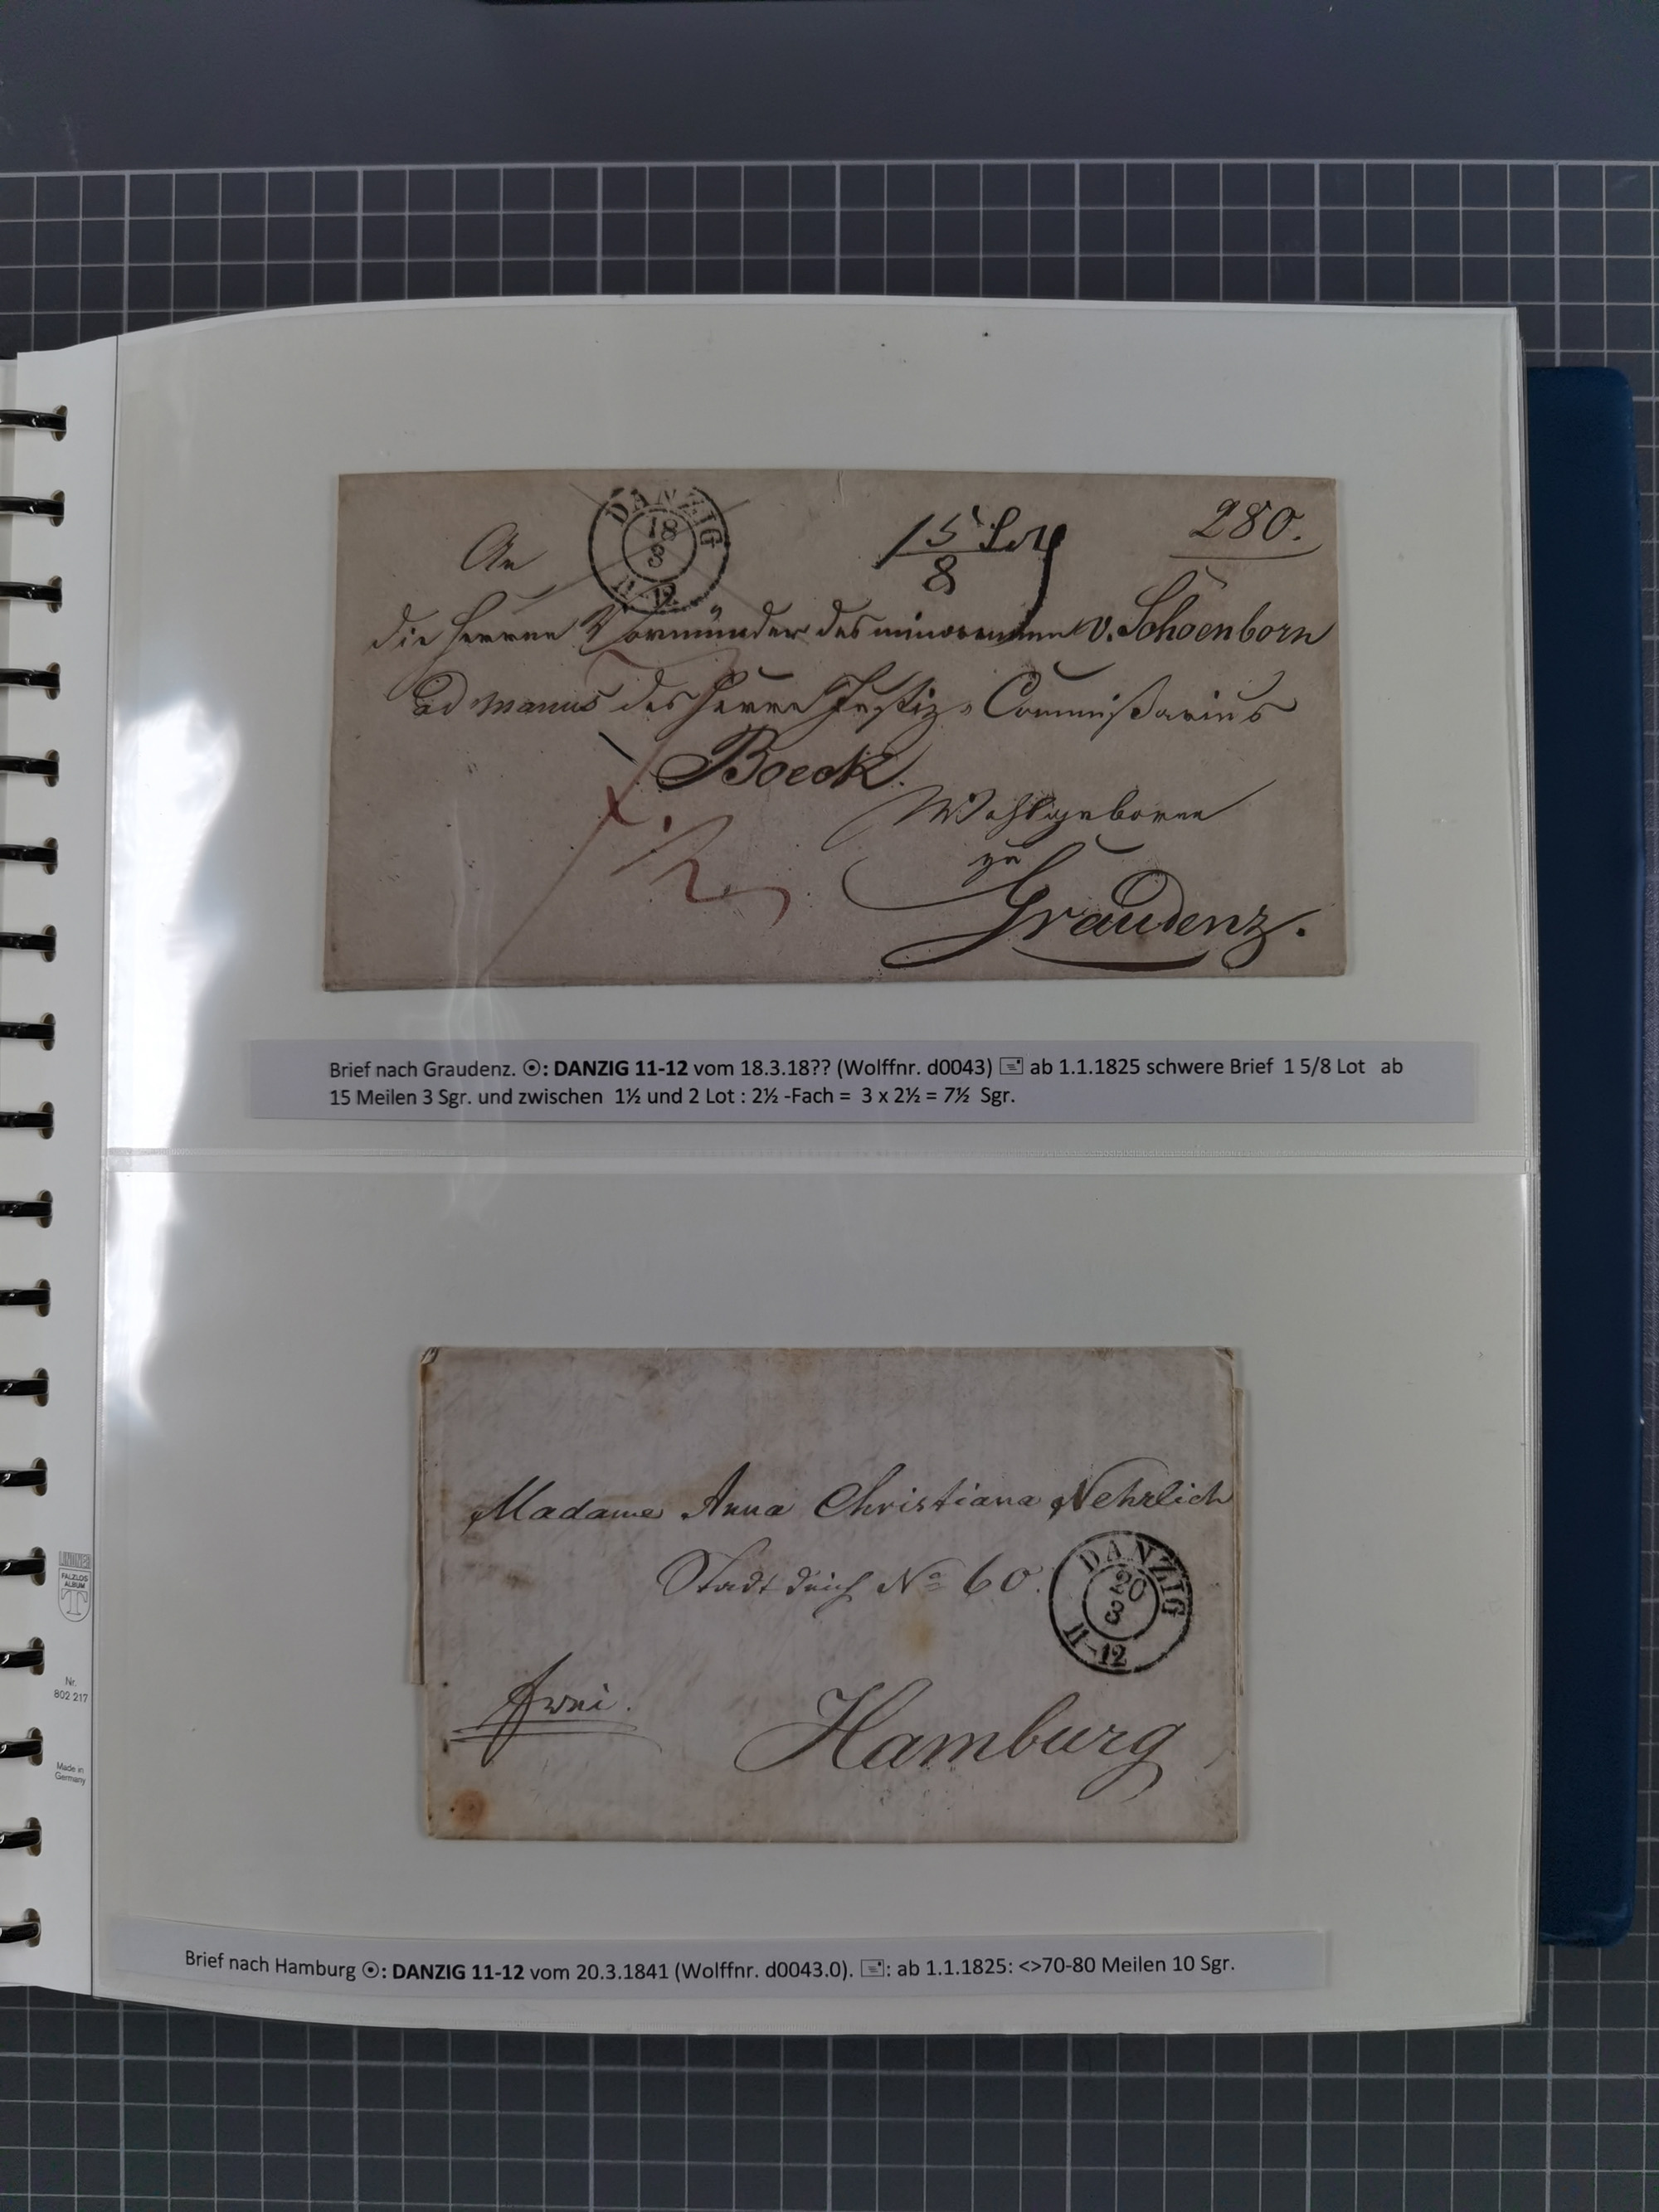 DANZIG
18
3
11-12
1 5/8 Loth
280.
An
die Herren Vormünder des minorennen v. Schoenborn
ad manus des Herrn Justiz-Commißarius
Boeck.
Wohlgeboren
zu
Graudenz.
7 1/2
Brief nach Graudenz. ☉: DANZIG 11-12 vom 18.3.18?? (Wolffnr. d0043) 🖃 ab 1.1.1825 schwere Brief 1 5/8 Lot ab
15 Meilen 3 Sgr. und zwischen 1½ und 2 Lot : 2½ -Fach = 3 x 2½ = 7½ Sgr.
Madame Anna Christiana Nehrlich
Stadt deich No 60.
DANZIG
20
3
11-12
frei.
Hamburg
FALZLOS
ALBUM
T
Nr.
802 217
Made in
Germany
Brief nach Hamburg ☉: DANZIG 11-12 vom 20.3.1841 (Wolffnr. d0043.0). 🖃: ab 1.1.1825: <>70-80 Meilen 10 Sgr.